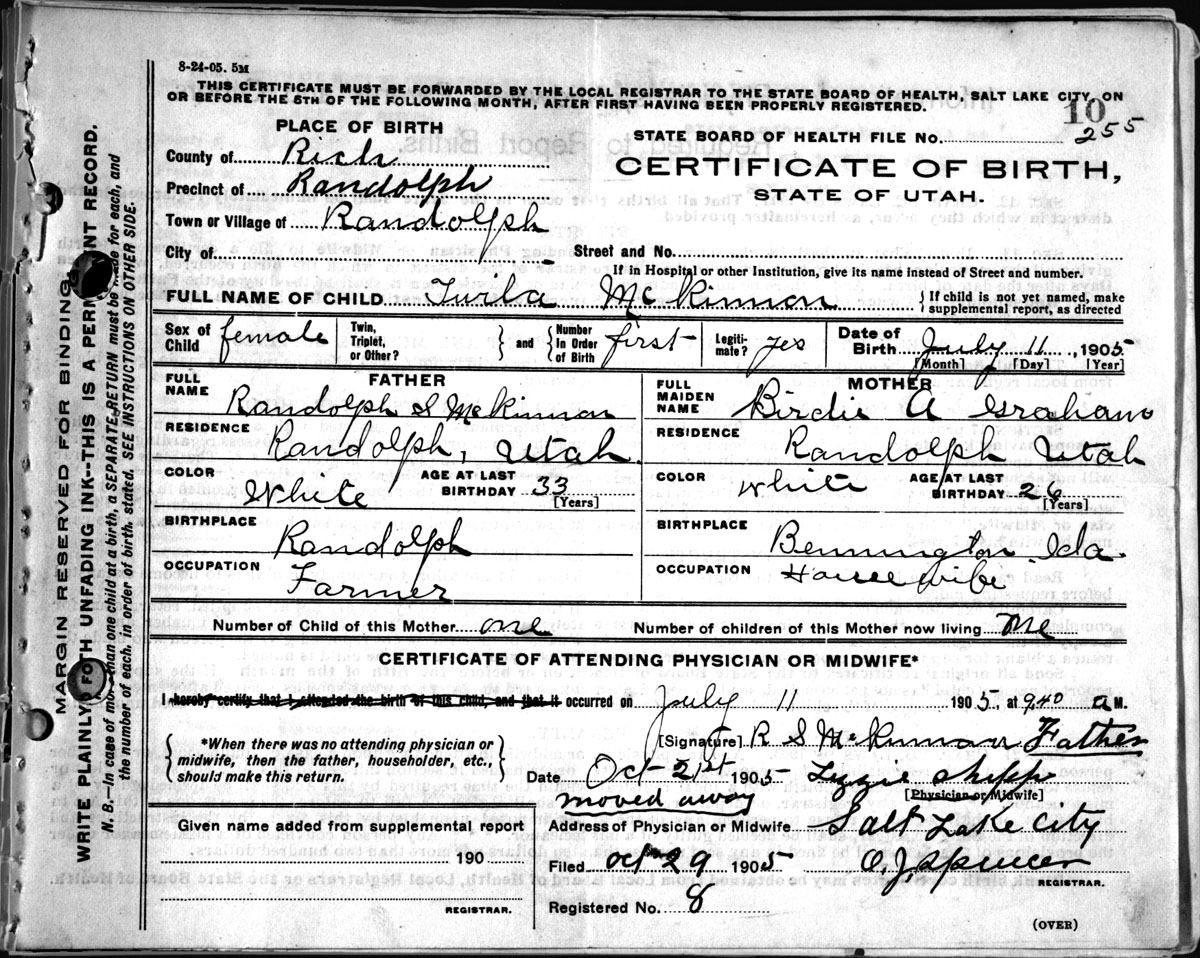 8-24-05. 5M
THIS CERTIFICATE MUST BE FORWARDED BY THE LOCAL REGISTRAR TO THE STATE BOARD OF HEALTH, SALT LAKE CITY, ON
OR BEFORE THE 5TH OF THE FOLLOWING MONTH, AFTER FIRST HAVING BEEN PROPERLY REGISTERED.
10
255
PLACE OF BIRTH
STATE BOARD OF HEALTH FILE No.
County of Rich
CERTIFICATE OF BIRTH,
Precinct of Randolph
STATE OF UTAH.
Town or Village of Randolph
City of Street and No.
If in Hospital or other Institution, give its name instead of Street and number.
FULL NAME OF CHILD Turla McKinnon { If child is not yet named, make supplemental report, as directed
Sex of Child female Twin, Triplet, or Other? } and { Number In Order of Birth first Legiti- mate? yes Date of Birth July 11, 1905
[Month] [Day] [Year]
FATHER MOTHER
FULL NAME Randolph S McKinnon FULL MAIDEN NAME Birdie A Graham
RESIDENCE Randolph, Utah RESIDENCE Randolph Utah
COLOR White AGE AT LAST BIRTHDAY 33 [Years] COLOR White AGE AT LAST BIRTHDAY 26 [Years]
BIRTHPLACE Randolph BIRTHPLACE Bennington Ida
OCCUPATION Farmer OCCUPATION Housewife
Number of Child of this Mother one Number of children of this Mother now living one
CERTIFICATE OF ATTENDING PHYSICIAN OR MIDWIFE*
I hereby certify that I attended the birth of this child, and that it occurred on July 11 1905, at 9.40 a M.
*When there was no attending physician or
midwife, then the father, householder, etc.,
should make this return.
[Signature] R S McKinnon Father
Date Oct 21st 1905 Lizzie Shipp
moved away [Physician or Midwife]
Given name added from supplemental report
190
REGISTRAR.
Address of Physician or Midwife Salt Lake City
Filed Oct 29 1905 O. J. Spencer
REGISTRAR.
Registered No. 8
(OVER)
MARGIN RESERVED FOR BINDING.
WRITE PLAINLY WITH UNFADING INK--THIS IS A PERMANENT RECORD.
N. B.—In case of more than one child at a birth, a SEPARATE RETURN must be made for each, and
the number of each, in order of birth, stated. SEE INSTRUCTIONS ON OTHER SIDE.